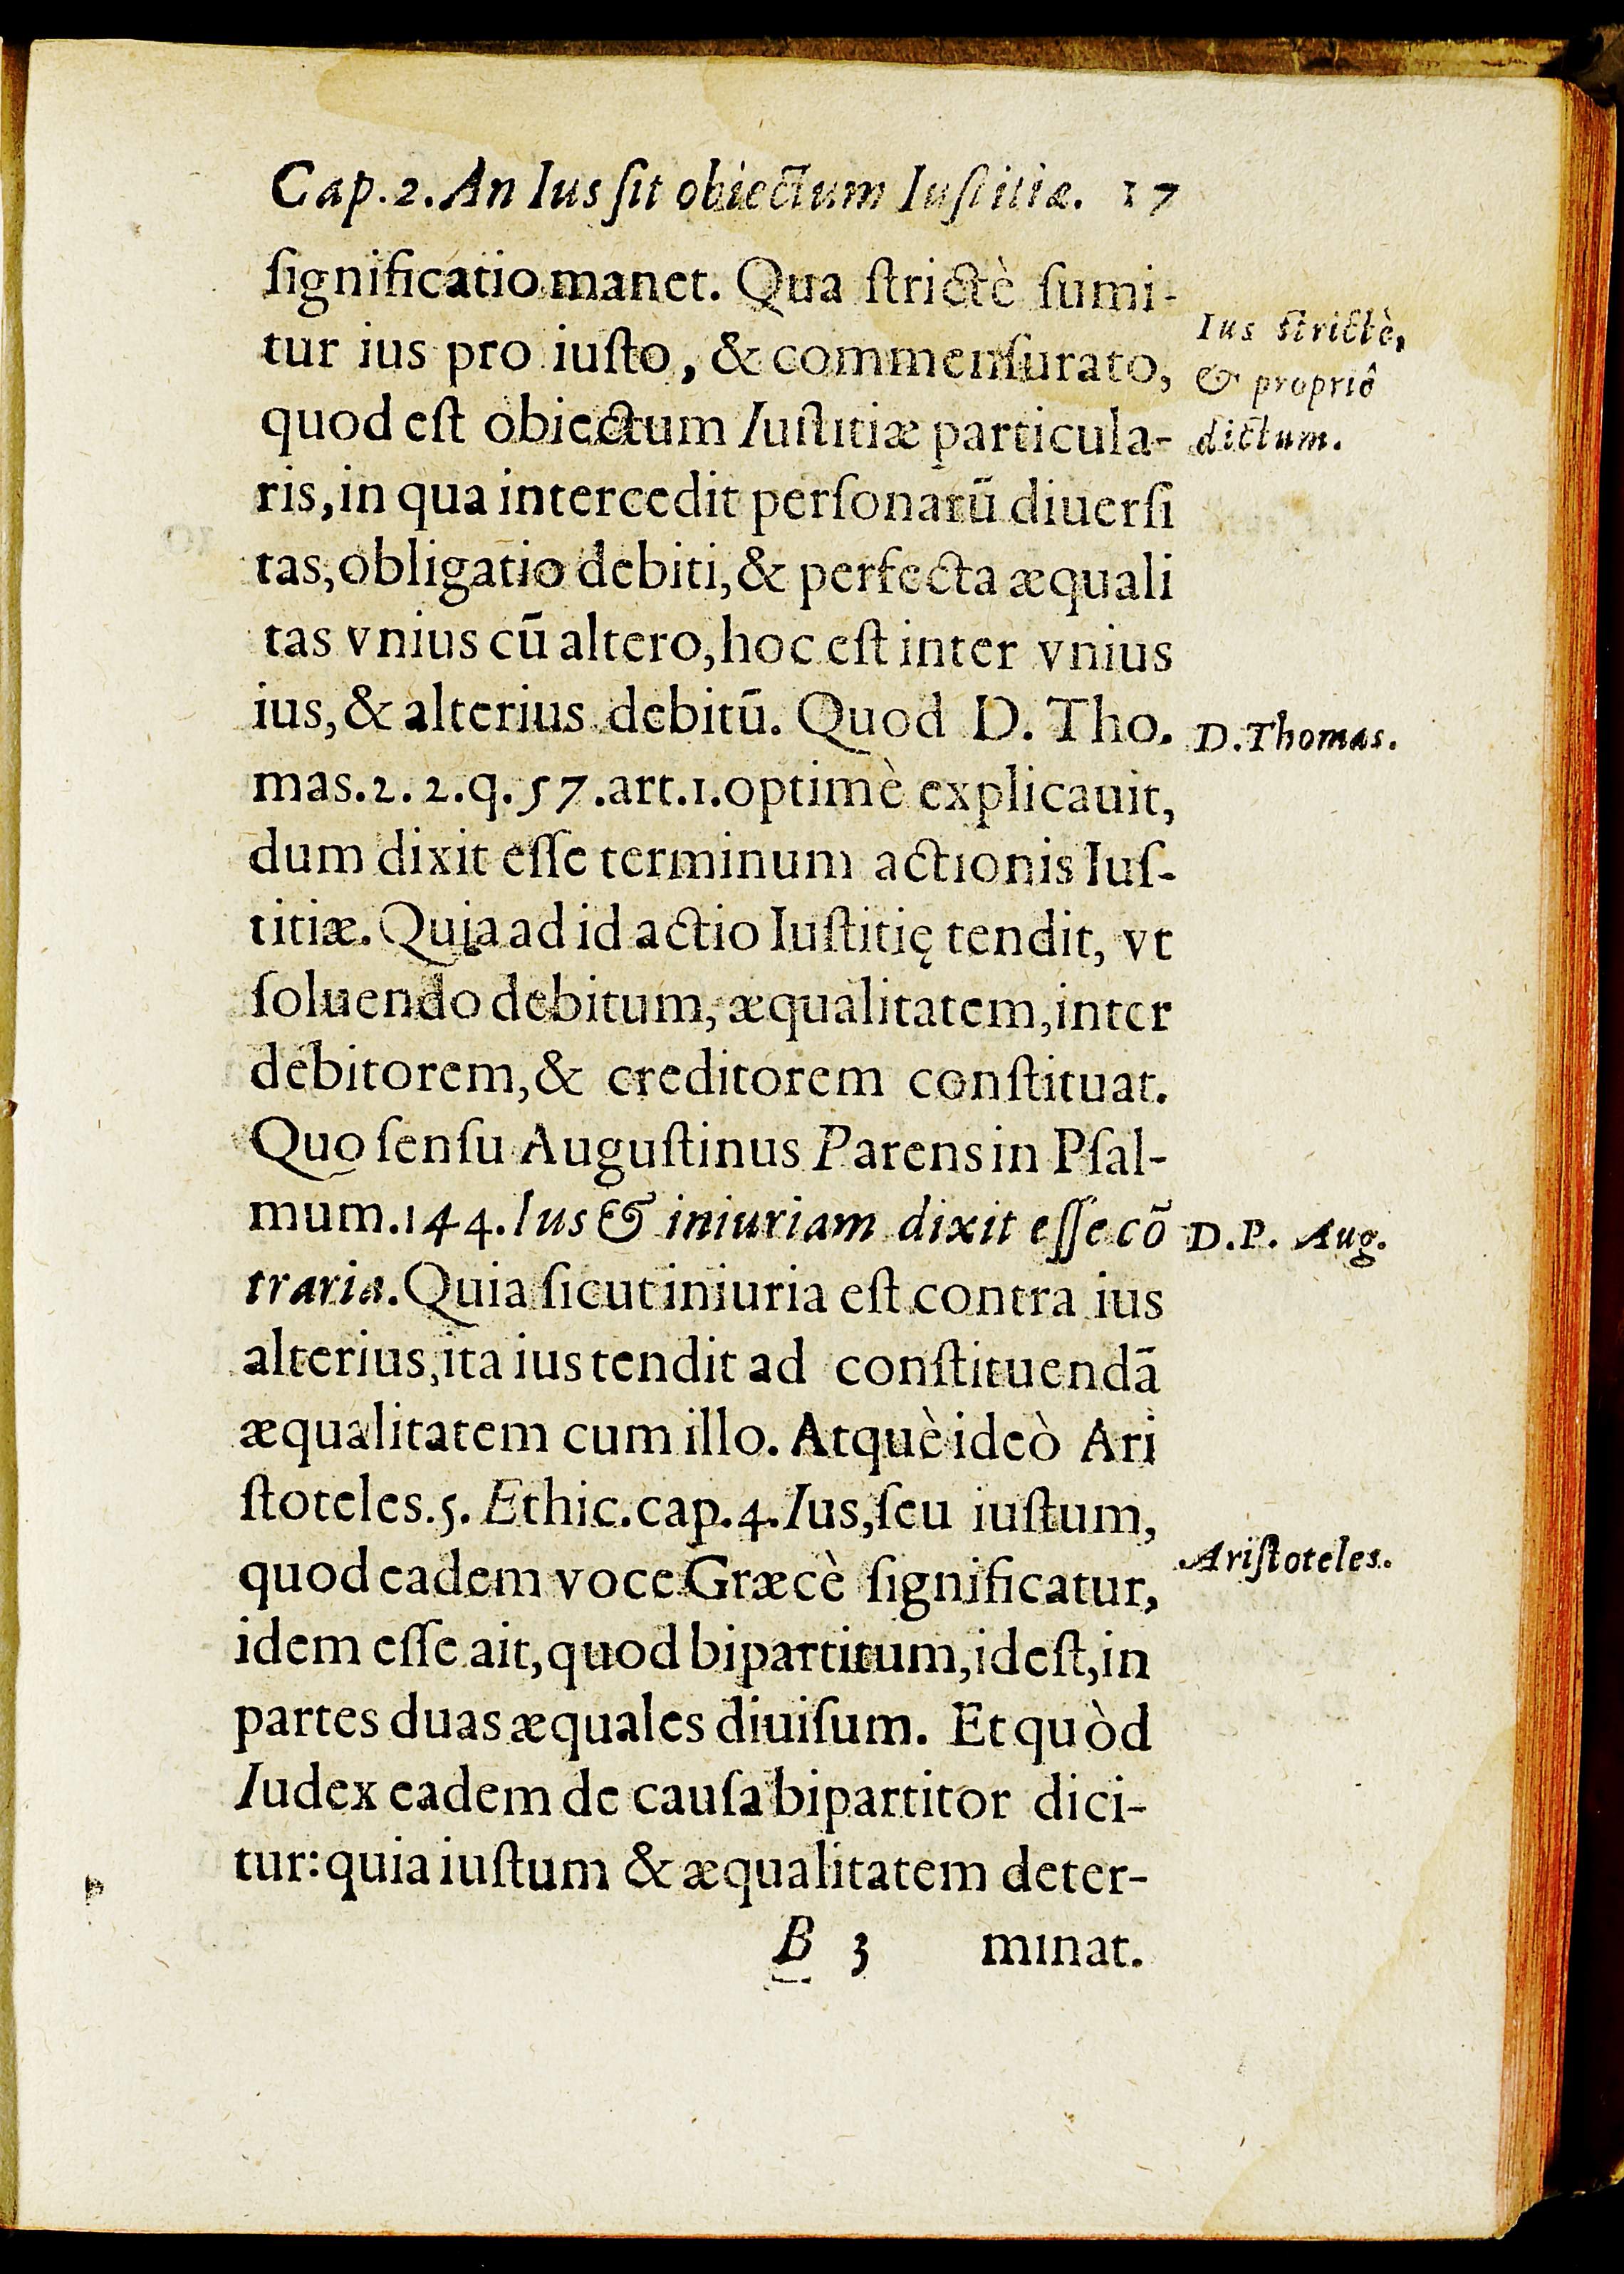 Cap.2. An Ius ſit obiectum Iuſtitiæ. 17
ſignificatio manet. Qua ſtrictè ſumi-
tur ius pro iuſto, & commenſurato,
quod eſt obiectum Iuſtitiæ particula-
ris, in qua intercedit perſonarū diuerſi
tas, obligatio debiti, & perfecta æquali
tas vnius cū altero, hoc eſt inter vnius
ius, & alterius debitū. Quod D. Tho.
mas. 2. 2. q. 57. art. 1. optimè explicauit,
dum dixit eſſe terminum actionis Iuſ-
titiæ. Quia ad id actio Iuſtitię tendit, vt
ſoluendo debitum, æqualitatem, inter
debitorem, & creditorem conſtituat.
Quo ſenſu Auguſtinus Parens in Pſal-
mum. 144. Ius & iniuriam dixit eſſe cō
traria. Quia ſicut iniuria eſt contra ius
alterius, ita ius tendit ad conſtituendā
æqualitatem cum illo. Atquè ideò Ari
ſtoteles. 5. Ethic. cap. 4. Ius, ſeu iuſtum,
quod eadem voce Græcè ſignificatur,
idem eſſe ait, quod bipartitum, id eſt, in
partes duas æquales diuiſum. Et quòd
Iudex eadem de cauſa bipartitor dici-
tur: quia iuſtum & æqualitatem deter-
B 3 minat.
Ius ſtrictè,
& propriô
dictum.
D. Thomas.
D. P. Aug.
Ariſtoteles.